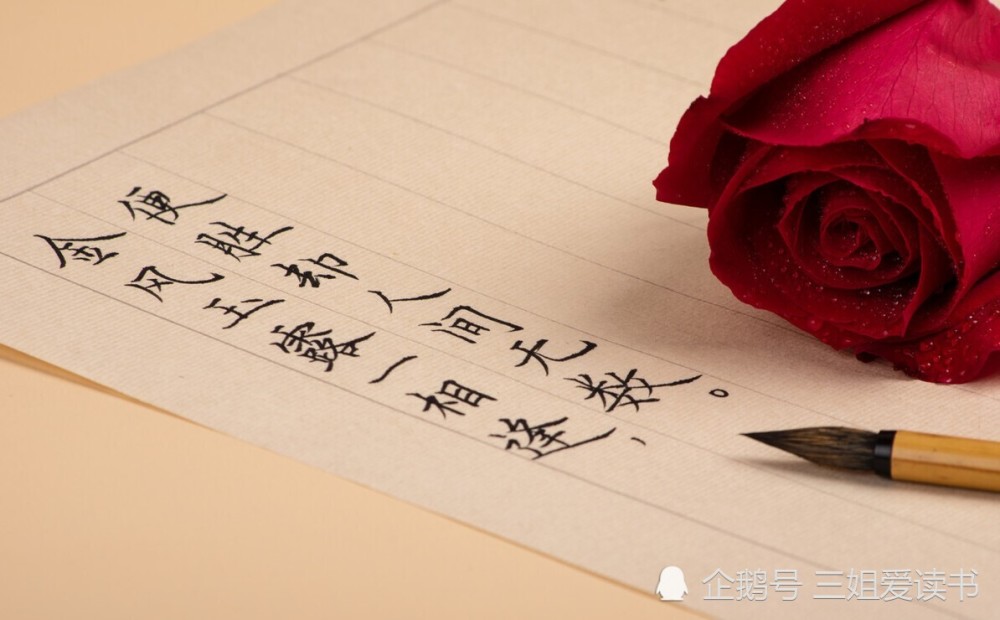 金风玉露一相逢，
便胜却人间无数。
企鹅号 三姐爱读书